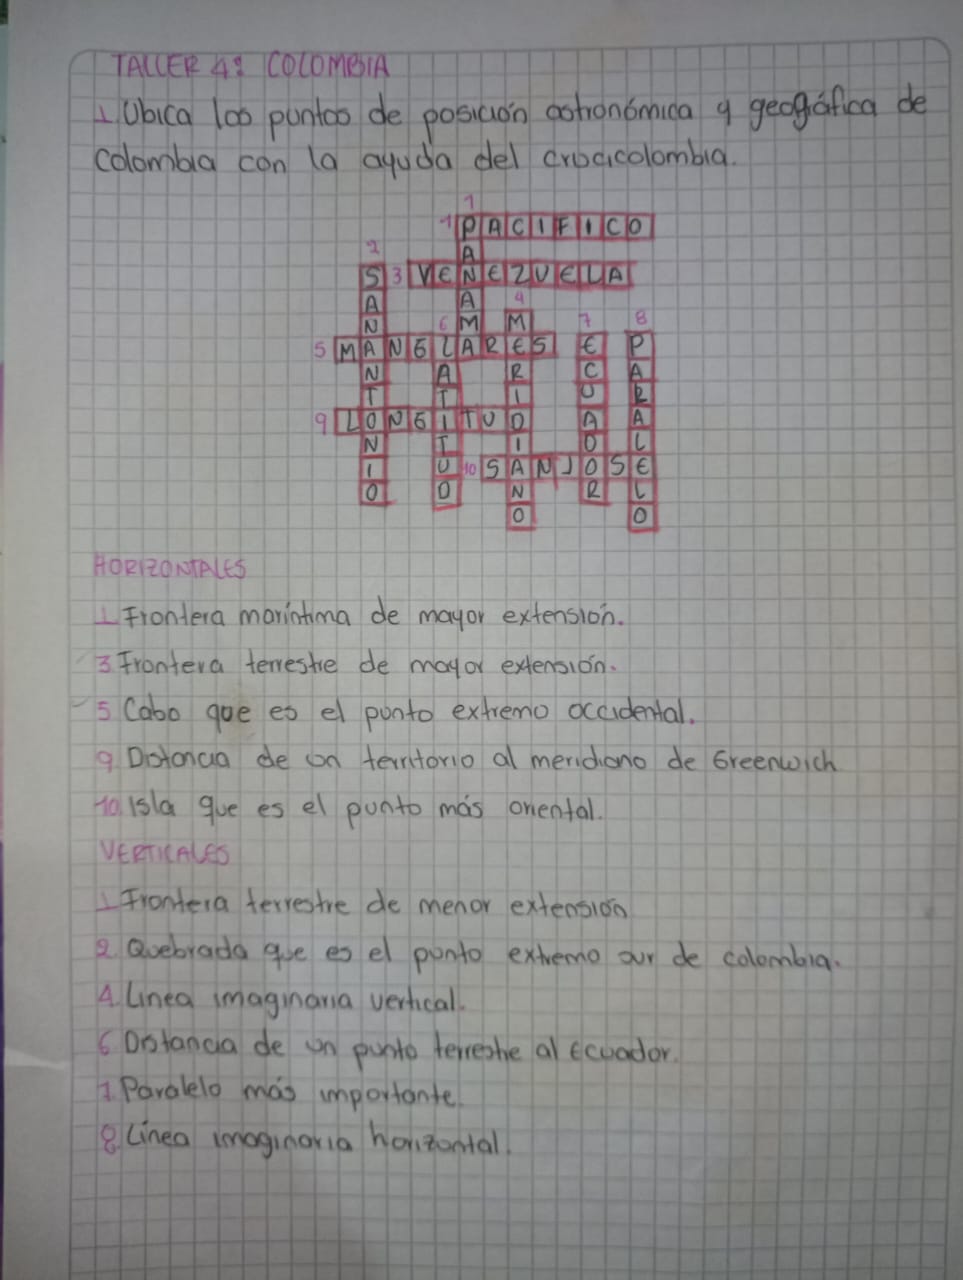 TALLER 4: COLOMBIA
1. Ubica los puntos de posición astronómica y geográfica de
Colombia con la ayuda del crucicolombia.
1
1 PACIFICO
2
3 VENEZUELA
4
6 7 8
5 MANGLARES
9 LONGITUD
10 SANJOSE
PANAMA
SANANTONIO
MERIDIANO
LATITUD
ECUADOR
PARALELO
HORIZONTALES
1 Frontera maríntima de mayor extensión.
3 Frontera terrestre de mayor extensión.
5 Cabo que es el punto extremo occidental.
9 Distancia de un territorio al meridiano de Greenwich
10. Isla que es el punto más oriental.
VERTICALES
1 Frontera terrestre de menor extensión
2. Quebrada que es el punto extremo sur de colombia.
4. Linea imaginaria vertical.
6 Distancia de un punto terrestre al Ecuador.
7. Paralelo más importante.
8. Línea imaginaria horizontal.